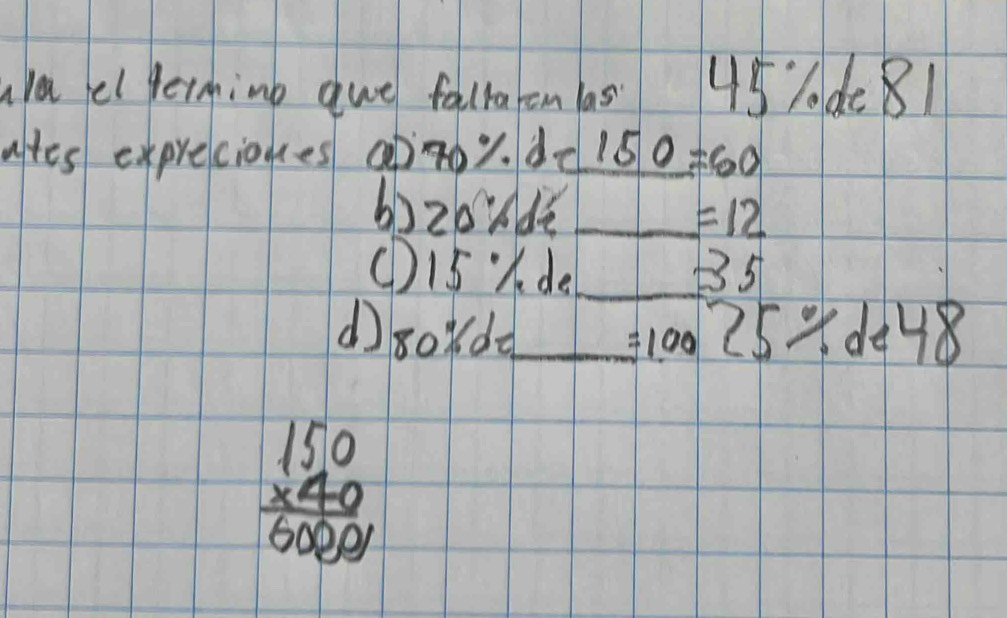 el termino que falta en las 45% de 81
expreciones a) 40% de 150 = 60
b) 20% de ____ = 12
c) 15% de ____ = 35
d) 80% de ____ = 100 25% de 48
150
x 40
6000